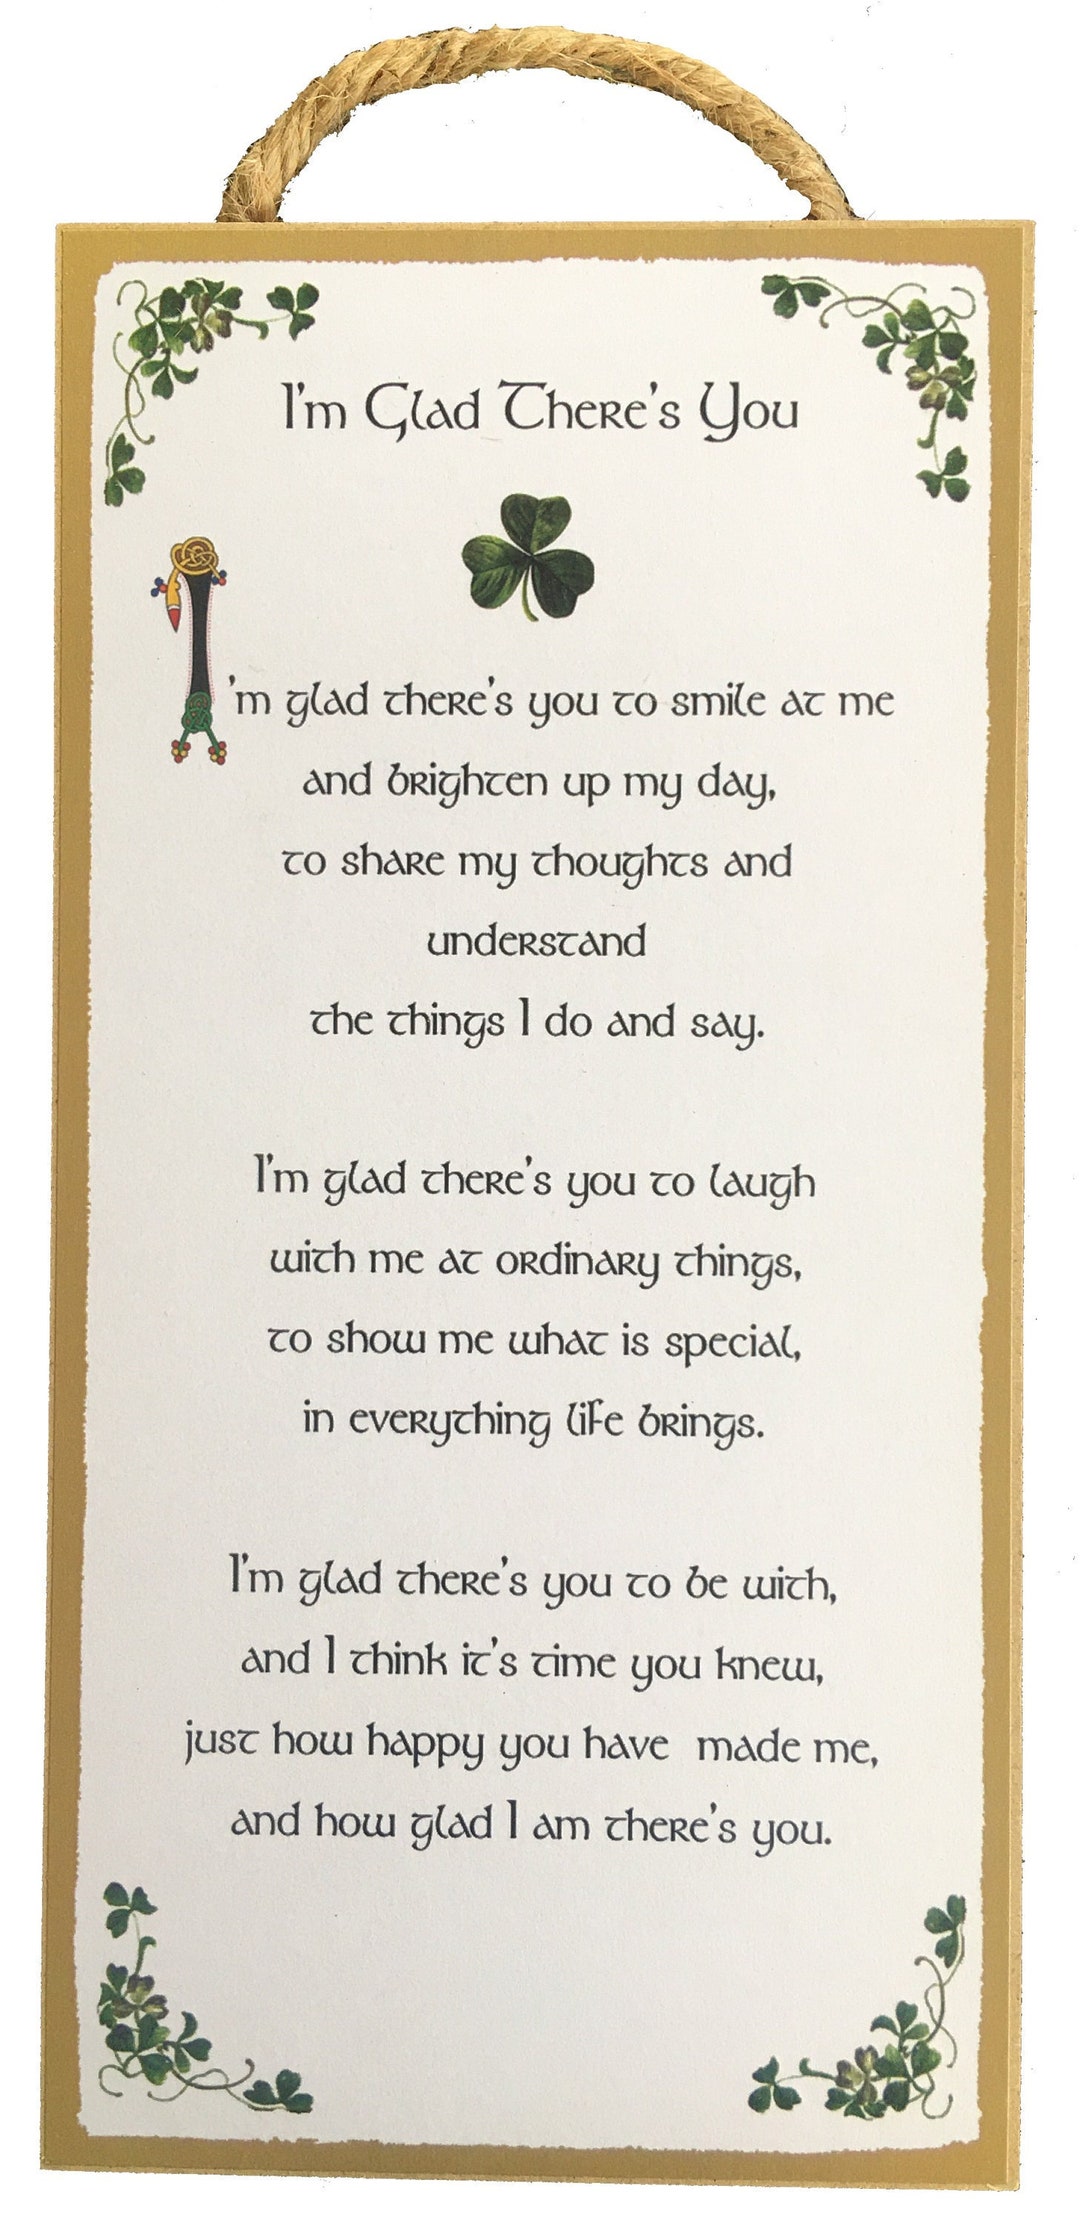 I'm Glad There's You
I'm glad there's you to smile at me
and brighten up my day,
to share my thoughts and
understand
the things I do and say.
I'm glad there's you to laugh
with me at ordinary things,
to show me what is special,
in everything life brings.
I'm glad there's you to be with,
and I think it's time you knew,
just how happy you have made me,
and how glad I am there's you.